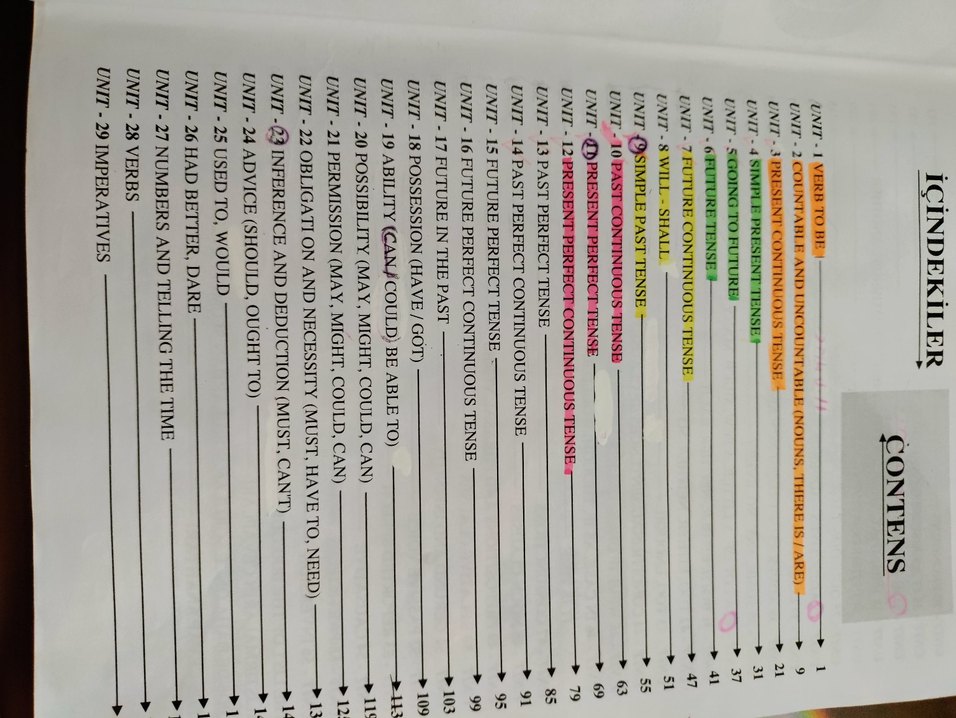 İÇİNDEKİLER
CONTENS
UNIT - 1 VERB TO BE 1
UNIT - 2 COUNTABLE AND UNCOUNTABLE (NOUNS, THERE IS / ARE) 9
UNIT - 3 PRESENT CONTINUOUS TENSE 21
UNIT - 4 SIMPLE PRESENT TENSE 31
UNIT - 5 GOING TO FUTURE 37
UNIT - 6 FUTURE TENSE 41
UNIT - 7 FUTURE CONTINUOUS TENSE 47
UNIT - 8 WILL - SHALL 51
UNIT - 9 SIMPLE PAST TENSE 55
UNIT - 10 PAST CONTINUOUS TENSE 63
UNIT - 11 PRESENT PERFECT TENSE 69
UNIT - 12 PRESENT PERFECT CONTINUOUS TENSE 79
UNIT - 13 PAST PERFECT TENSE 85
UNIT - 14 PAST PERFECT CONTINUOUS TENSE 91
UNIT - 15 FUTURE PERFECT TENSE 95
UNIT - 16 FUTURE PERFECT CONTINUOUS TENSE 99
UNIT - 17 FUTURE IN THE PAST 103
UNIT - 18 POSSESSION (HAVE / GOT) 109
UNIT - 19 ABILITY (CAN / COULD) BE ABLE TO) 113
UNIT - 20 POSSIBILITY (MAY, MIGHT, COULD, CAN) 119
UNIT - 21 PERMISSION (MAY, MIGHT, COULD, CAN) 125
UNIT - 22 OBLIGATI ON AND NECESSITY (MUST, HAVE TO, NEED)
UNIT - 23 INFERENCE AND DEDUCTION (MUST, CAN'T)
UNIT - 24 ADVICE (SHOULD, OUGHT TO)
UNIT - 25 USED TO, WOULD
UNIT - 26 HAD BETTER, DARE
UNIT - 27 NUMBERS AND TELLING THE TIME
UNIT - 28 VERBS
UNIT - 29 IMPERATIVES